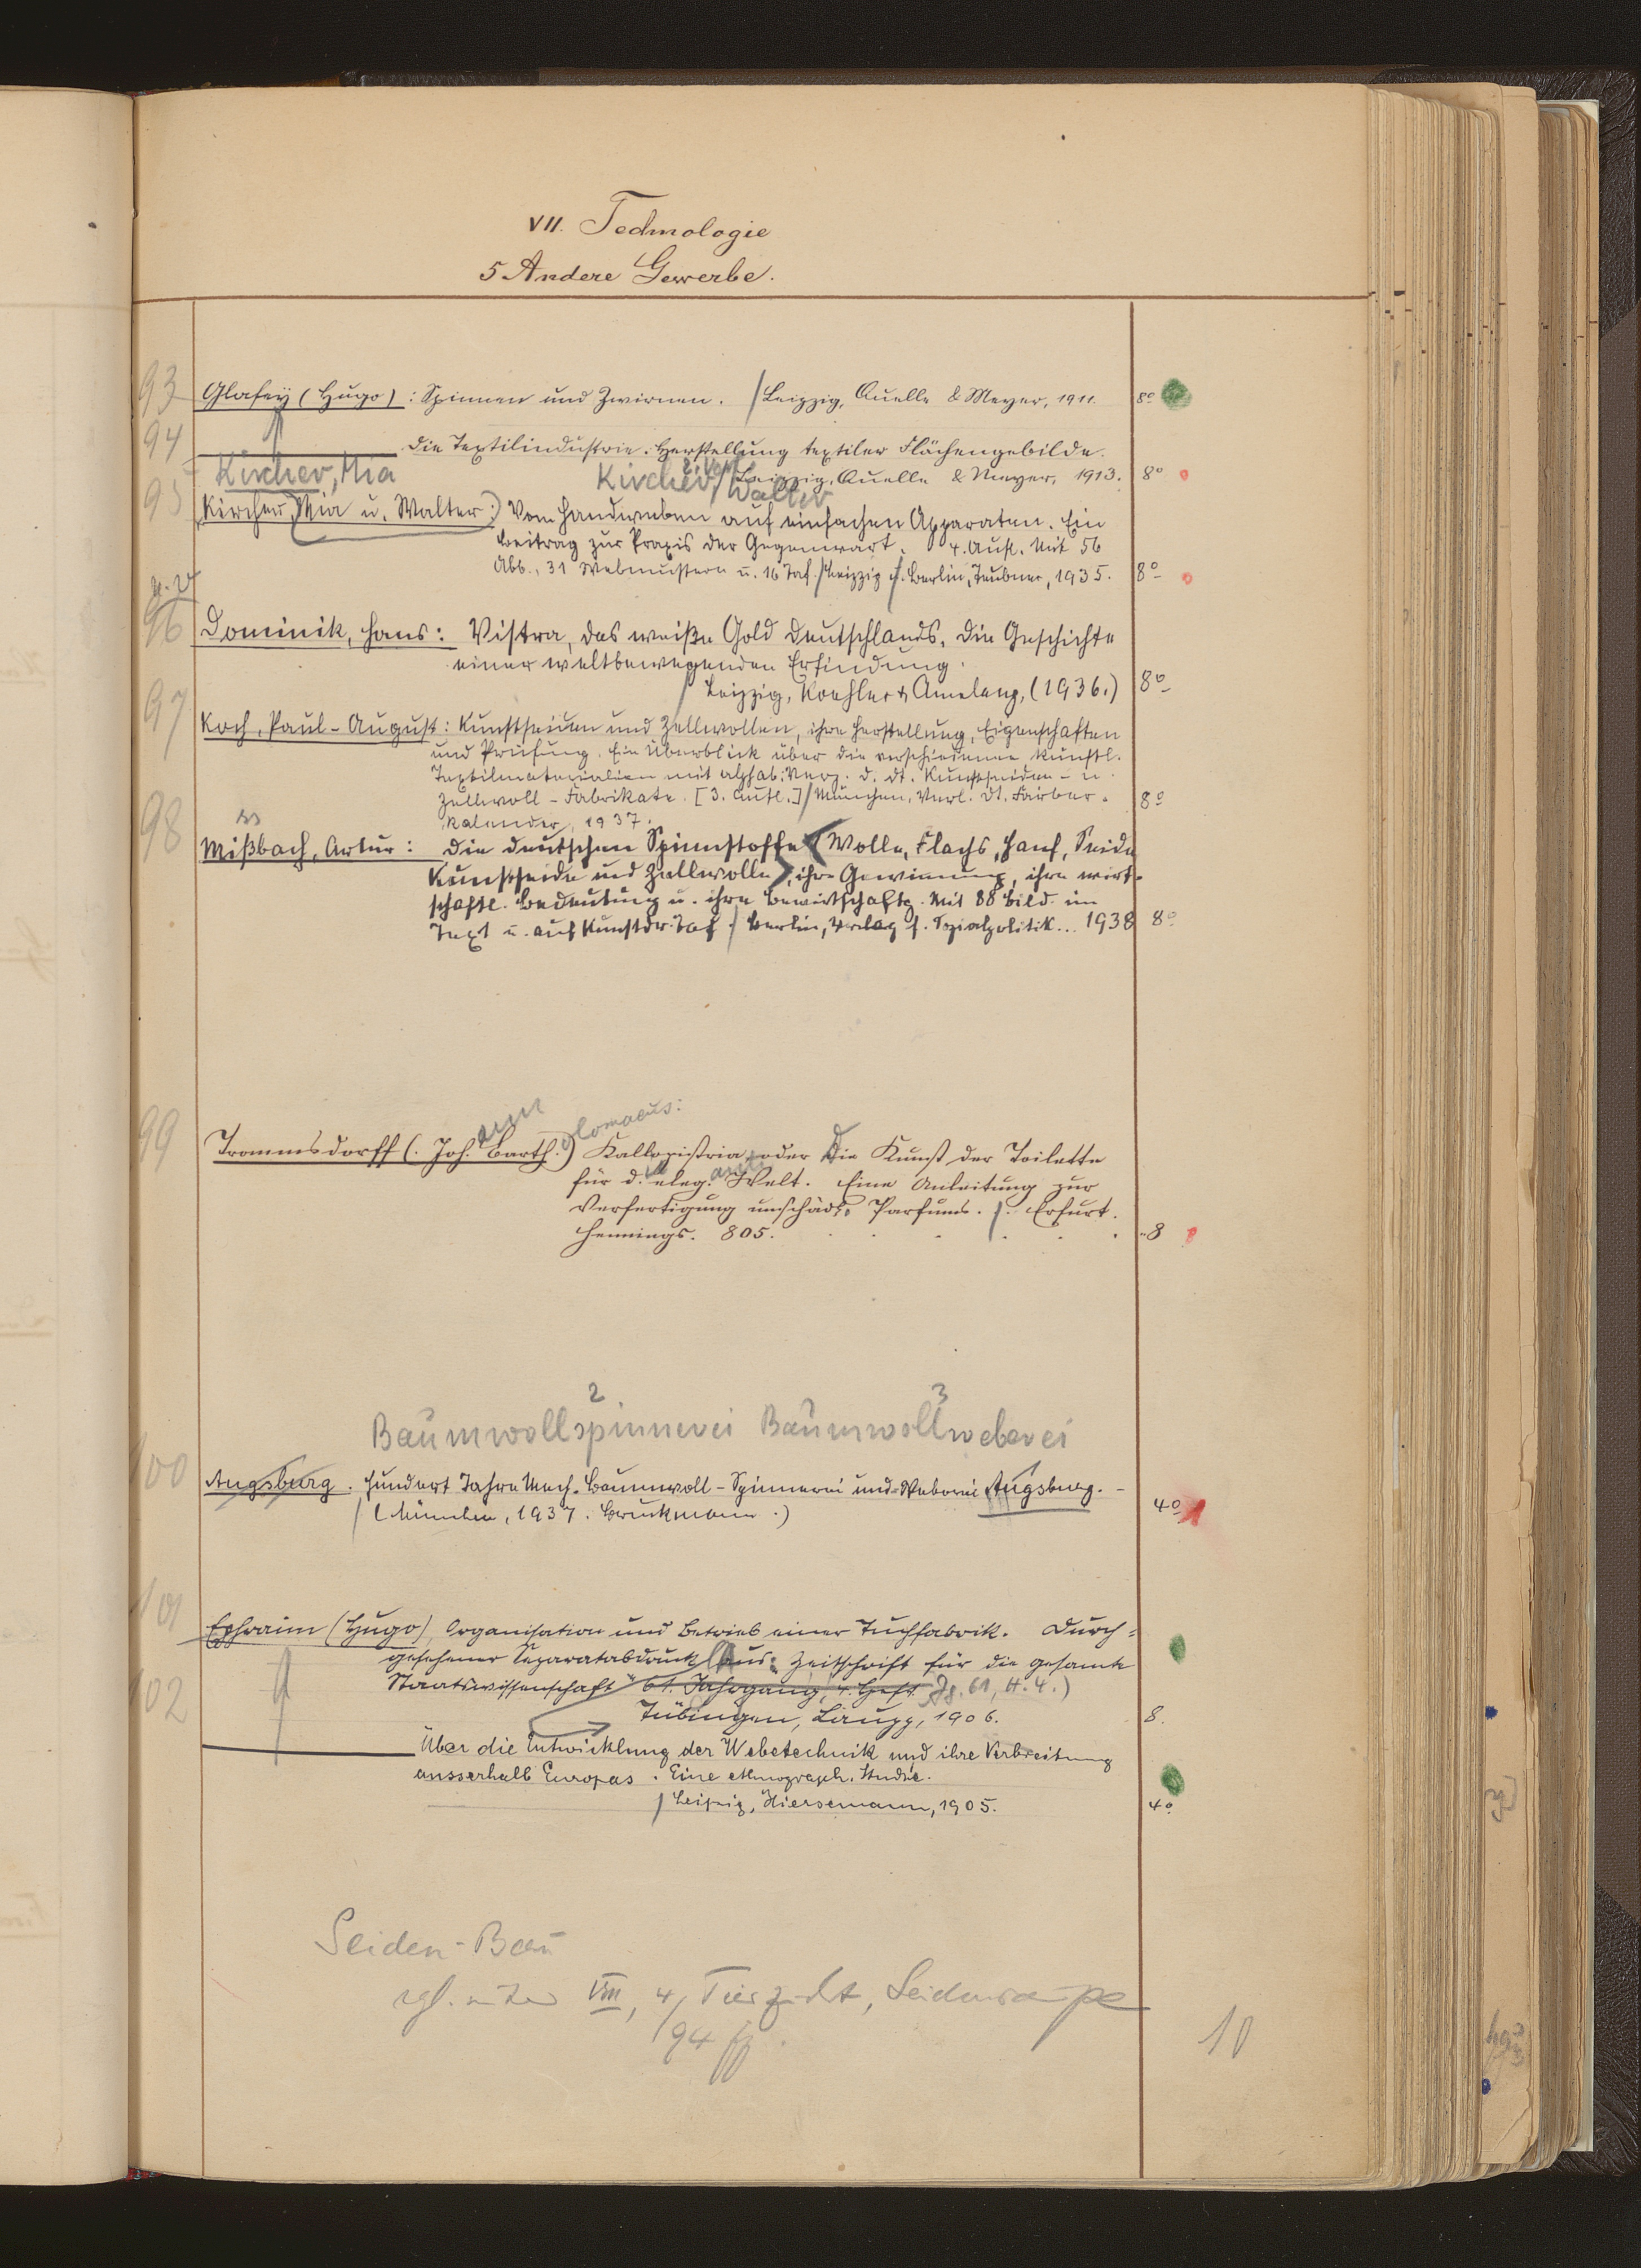 VII. Technologie
5 Andere Gewerbe.
93 Glafey (Hugo): Spinnen und Zwirnen. / Leipzig, Quelle & Meyer, 1911. 8°
94 Die Textilindustrie. Herstellung textiler Flächengebilde.
Kircher, Mia Kircher, Walter
Leipzig, Quelle & Meyer, 1913. 8°
95 Kircher, Mia u. Walter: Vom Handweben auf einfachen Apparaten. Ein
Beitrag zur Praxis der Gegenwart. 4. Aufl. Mit 56
Abb., 31 Webmustern u. 16 Taf. / Leipzig u. Berlin, Teubner, 1935. 8°
96 Dominik, Hans: Vistra, das weiße Gold Deutschlands. Die Geschichte
einer weltbewegenden Erfindung.
/ Leipzig, Koehler & Amelang, (1936.) 8°
97 Koch, Paul-August: Kunstseiden und Zellwollen, ihre Herstellung, Eigenschaften
und Prüfung. Ein Überblick über die verschiedenen künstl.
Textilmaterialien mit alphab. Verz. d. dt. Kunstseiden- u.
Zellwoll-Fabrikate. [3. Aufl.] / München, Verl. Dt. Färber- 8°
Kalender, 1937.
98 Mißbach, Artur: Die deutschen Spinnstoffe (Wolle, Flachs, Hanf, Seide
Kunstseide und Zellwolle), ihre Gewinnung, ihre wirt-
schaftl. Bedeutung u. ihre Bewirtschaftg. Mit 88 Bild. im
Text u. auf Kunstdr. Taf. / Berlin, Verlag f. Sozialpolitik... 1938 8°
99 Trommsdorff (Joh. Barth.) Kallopistria oder Die Kunst der Toilette
für d. eleg. Welt. Eine Anleitung zur
Verfertigung unschädl. Parfums. / Erfurt.
Hennings. 805. 8
2 3
Baumwollspinnerei Baumwollweberei
100 Augsburg. Hundert Jahre Mech. Baumwoll-Spinnerei und Weberei Augsburg. -
/ (München, 1937. Bruckmann.) 4°
101 Ephraim (Hugo) Organisation und Betrieb einer Tuchfabrik. Durch=
gesehener Separatabdruck (Aus: Zeitschrift für die gesamte
Staatswissenschaft" 61. Jahrgang, 4. Heft Jg. 61, H. 4.)
Tübingen, Laupp, 1906. 8.
102 Über die Entwicklung der Webetechnik und ihre Verbreitung
ausserhalb Europas. Eine ethnograph. Studie.
/ Leipzig, Hiersemann, 1905. 4°
Seiden-Bau
vgl. unter VIII, 4, Tierzucht, Seidenraupe
194 ff.
10